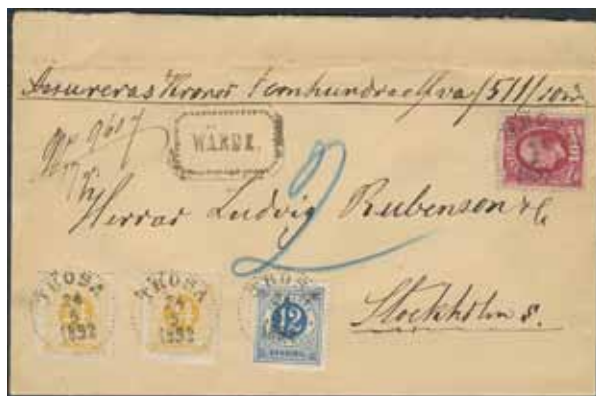 Assureras Kronor Femhundraelfva /511/ 10 ör
WÄRDE.
Herrar Ludvig Rubenson & C
2
Stockholm s.
10
TROSA
24
5
1892
TROSA
24
5
1892
TROSA
24
12